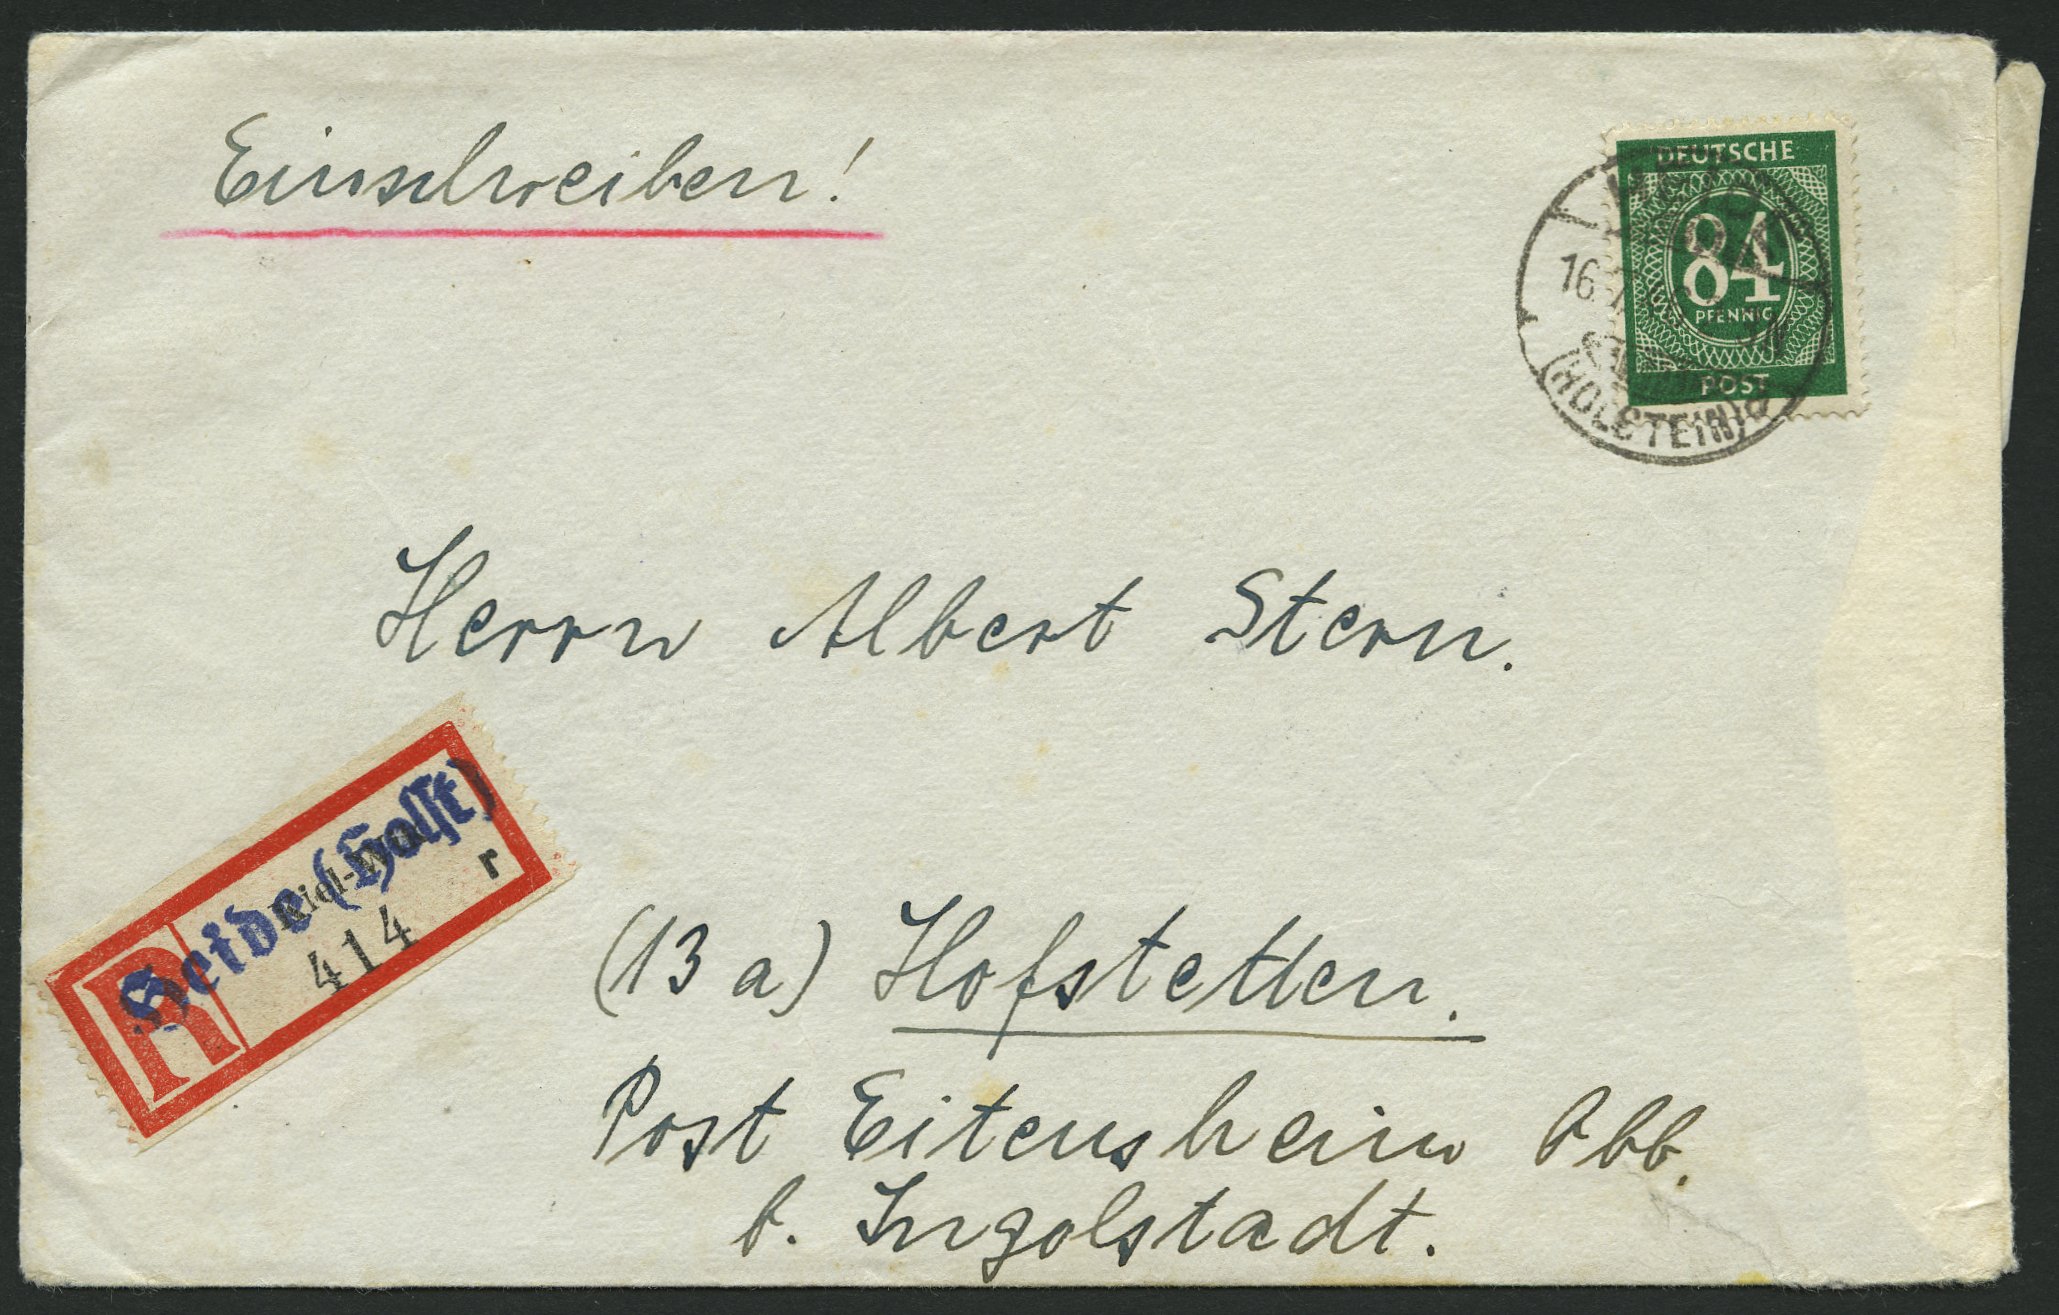 Einschreiben!
DEUTSCHE
84
PFENNIG
POST
16.
(HOLSTEIN)
Herrn Albert Stern.
Heide (Holst)
Kiel-Wik
R
414
r
(13 a) Hofstetten.
Post Eitensheim Obb.
b. Ingolstadt.